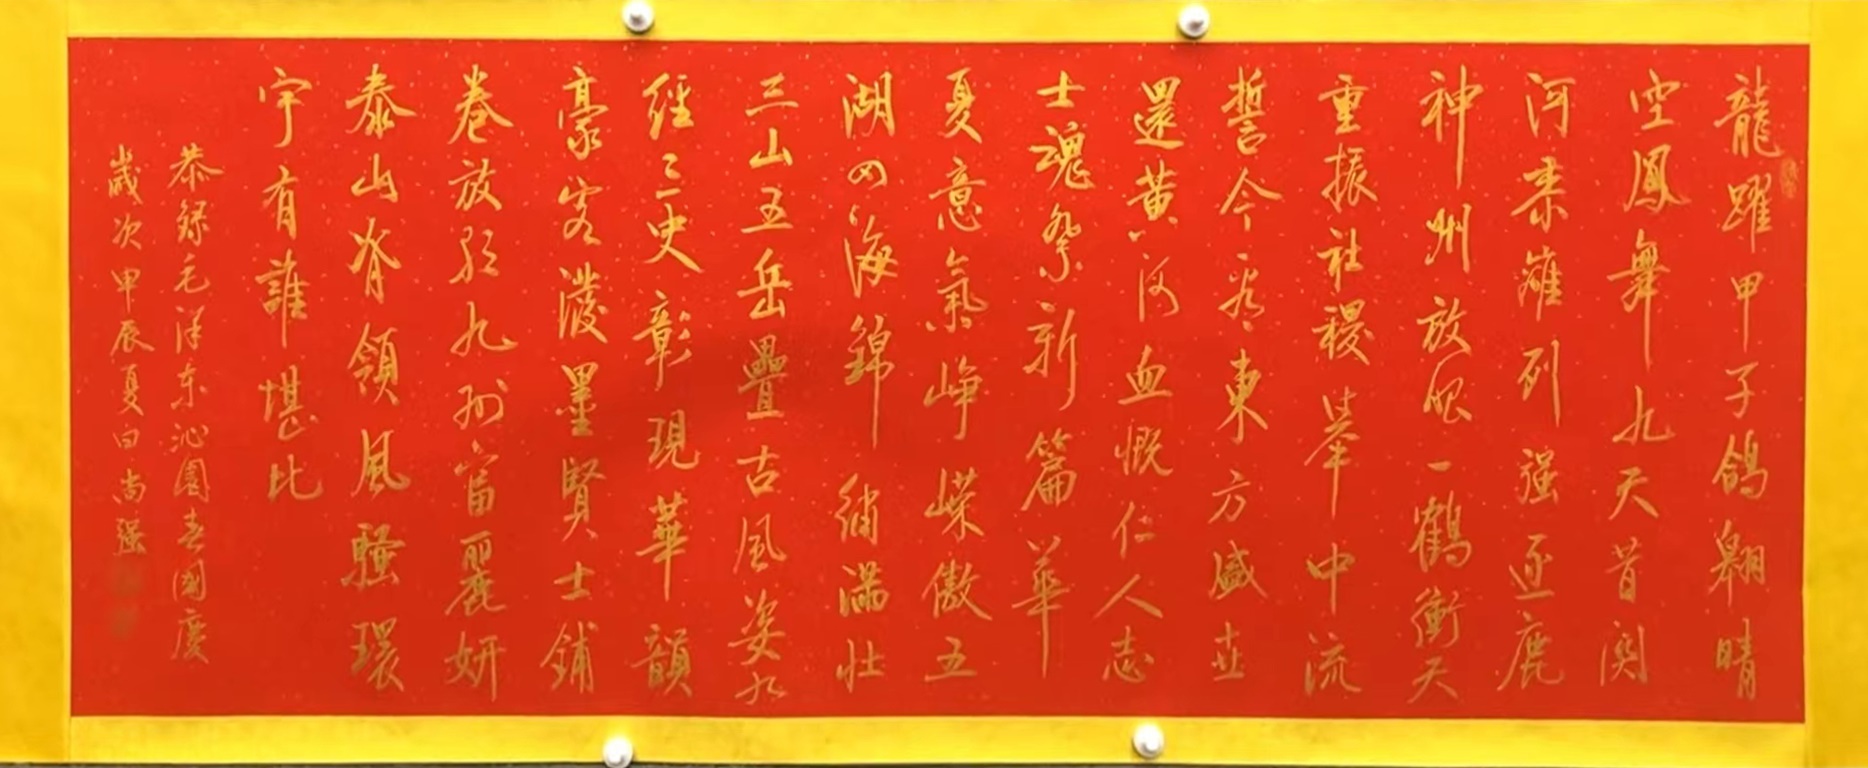 龍躍甲子鴿翱晴
空鳳舞九天昔関
河泰雍列强逐鹿
神州放眼一鶴衝天
重振社稷舉中流
誓今看東方盛世
還黄河血慨仁人志
士魂祭新篇華
夏意氣崢嶸傲五
湖四海錦繡滿壯
三山五岳疊古風姿九
經三史彰現華韻
豪客潑墨賢士鋪
卷放歌九州富麗妍
泰山脊領風騷環
宇有誰堪比
恭録毛澤东沁園春國慶
歲次甲辰夏白尚强